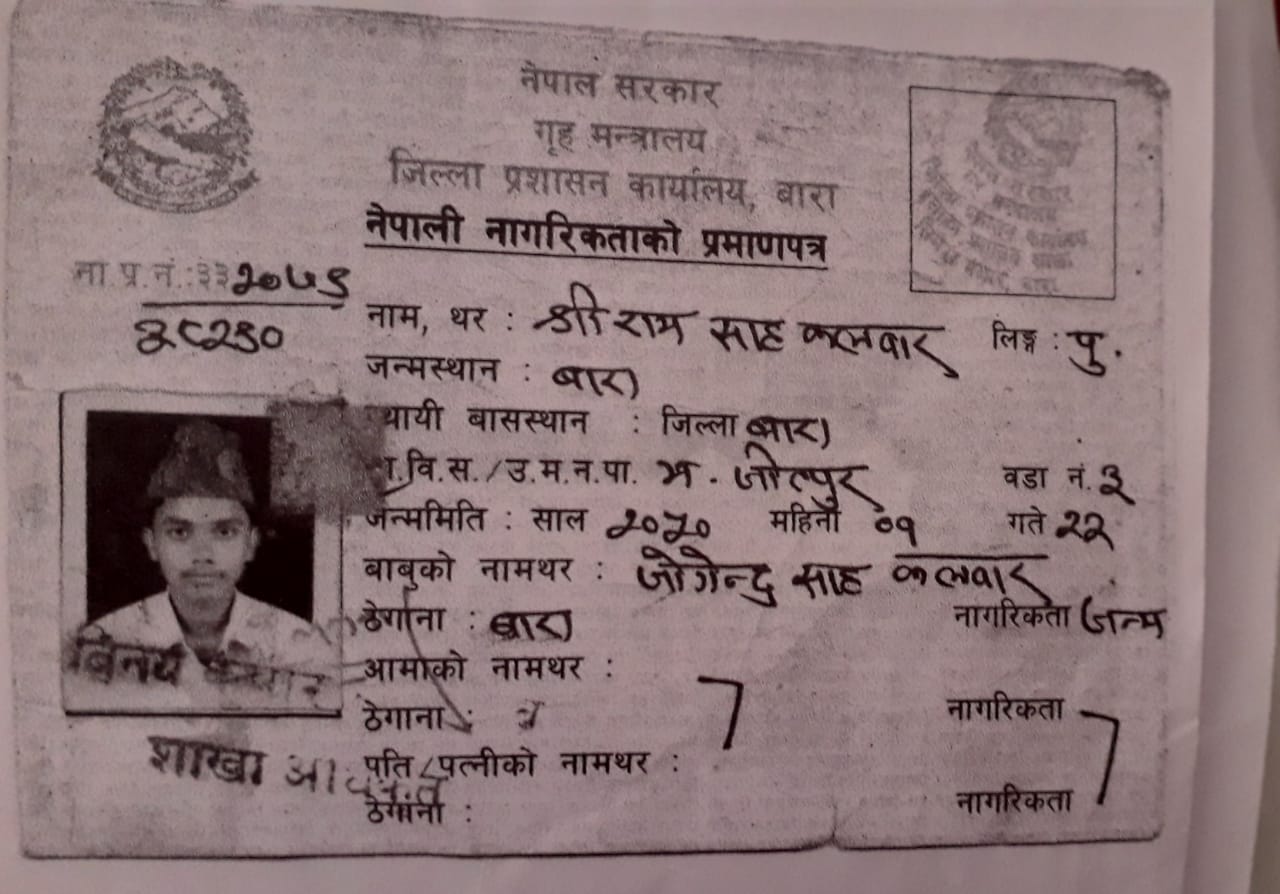 नेपाल सरकार
गृह मन्त्रालय
जिल्ला प्रशासन कार्यालय, बारा
नेपाली नागरिकताको प्रमाणपत्र
ना.प्र.नं.:३३२०७९
३८२३०
नाम, थर : श्री राम साह कलवार लिङ्ग : पु.
जन्मस्थान : बारा
स्थायी बासस्थान : जिल्ला बारा
गा.वि.स./उ.म.न.पा. भ. जीतपुर वडा नं. ३
जन्ममिति : साल २०५० महिना ०१ गते २२
बाबुको नामथर : जोगेन्द्र साह कलवार
ठेगाना : बारा नागरिकता जन्म
आमाको नामथर :
ठेगाना : नागरिकता
पति/पत्नीको नामथर :
ठेगाना : नागरिकता
विनय
शाखा